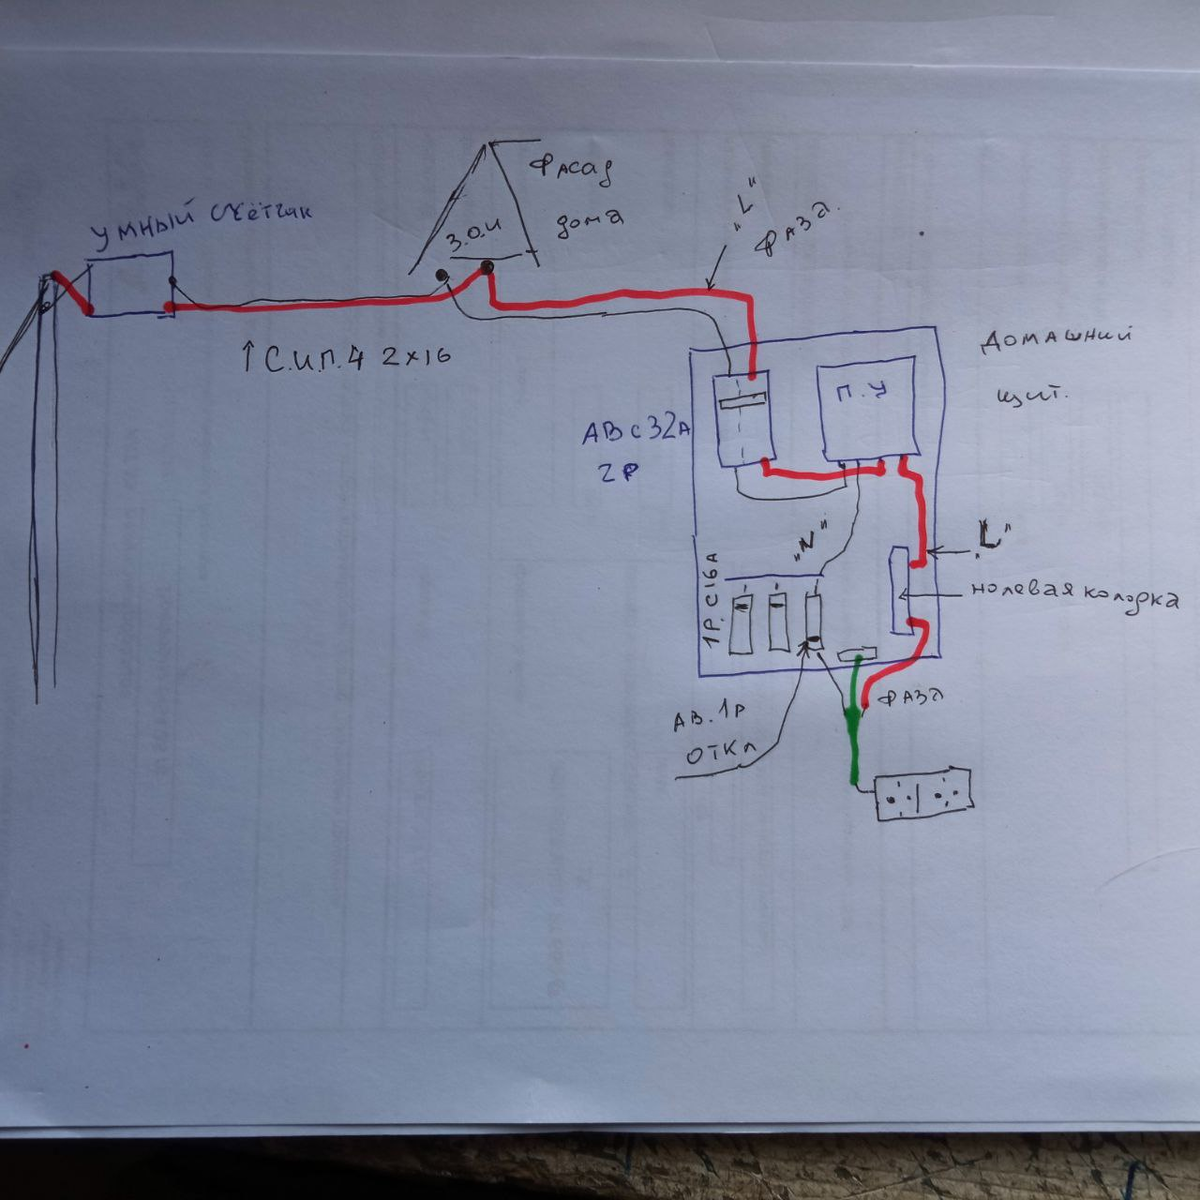 УМНЫЙ СЧЁТЧИК
ФАСАД
ДОМА
З.О.И
"L"
ФАЗА.
↑ С.И.П.4 2×16
ДОМАШНИЙ
ЩИТ.
П.У
АВ с 32А
2Р
"N"
"L"
1Р. С16А
НОЛЕВАЯ КОЛОДКА
АВ. 1Р
ОТКЛ
ФАЗА